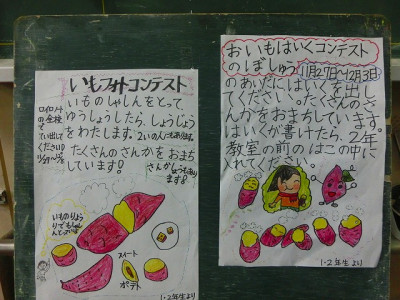 いもフォトコンテスト
いものしゃしんをとって
ゆうしょうしたら、しょうじょう
をわたします。2いの人もあります。
たくさんのさんかをおまち
しています!
さんかしょうもあり
ます!
ロイロノート
の全校
てい出して
ください
いものりょう
りでもしゃし
んとっていいよ
スイート
ポテト
1・2年生より
おいもはいくコンテスト
のぼしゅう 11月27日〜12月3日
のあいだにはいくを出し
てください。たくさんのさ
んかをおまちしています。
はいくが書けたら、2年
教室の前のはこの中に
入れてください。
1・2年生より